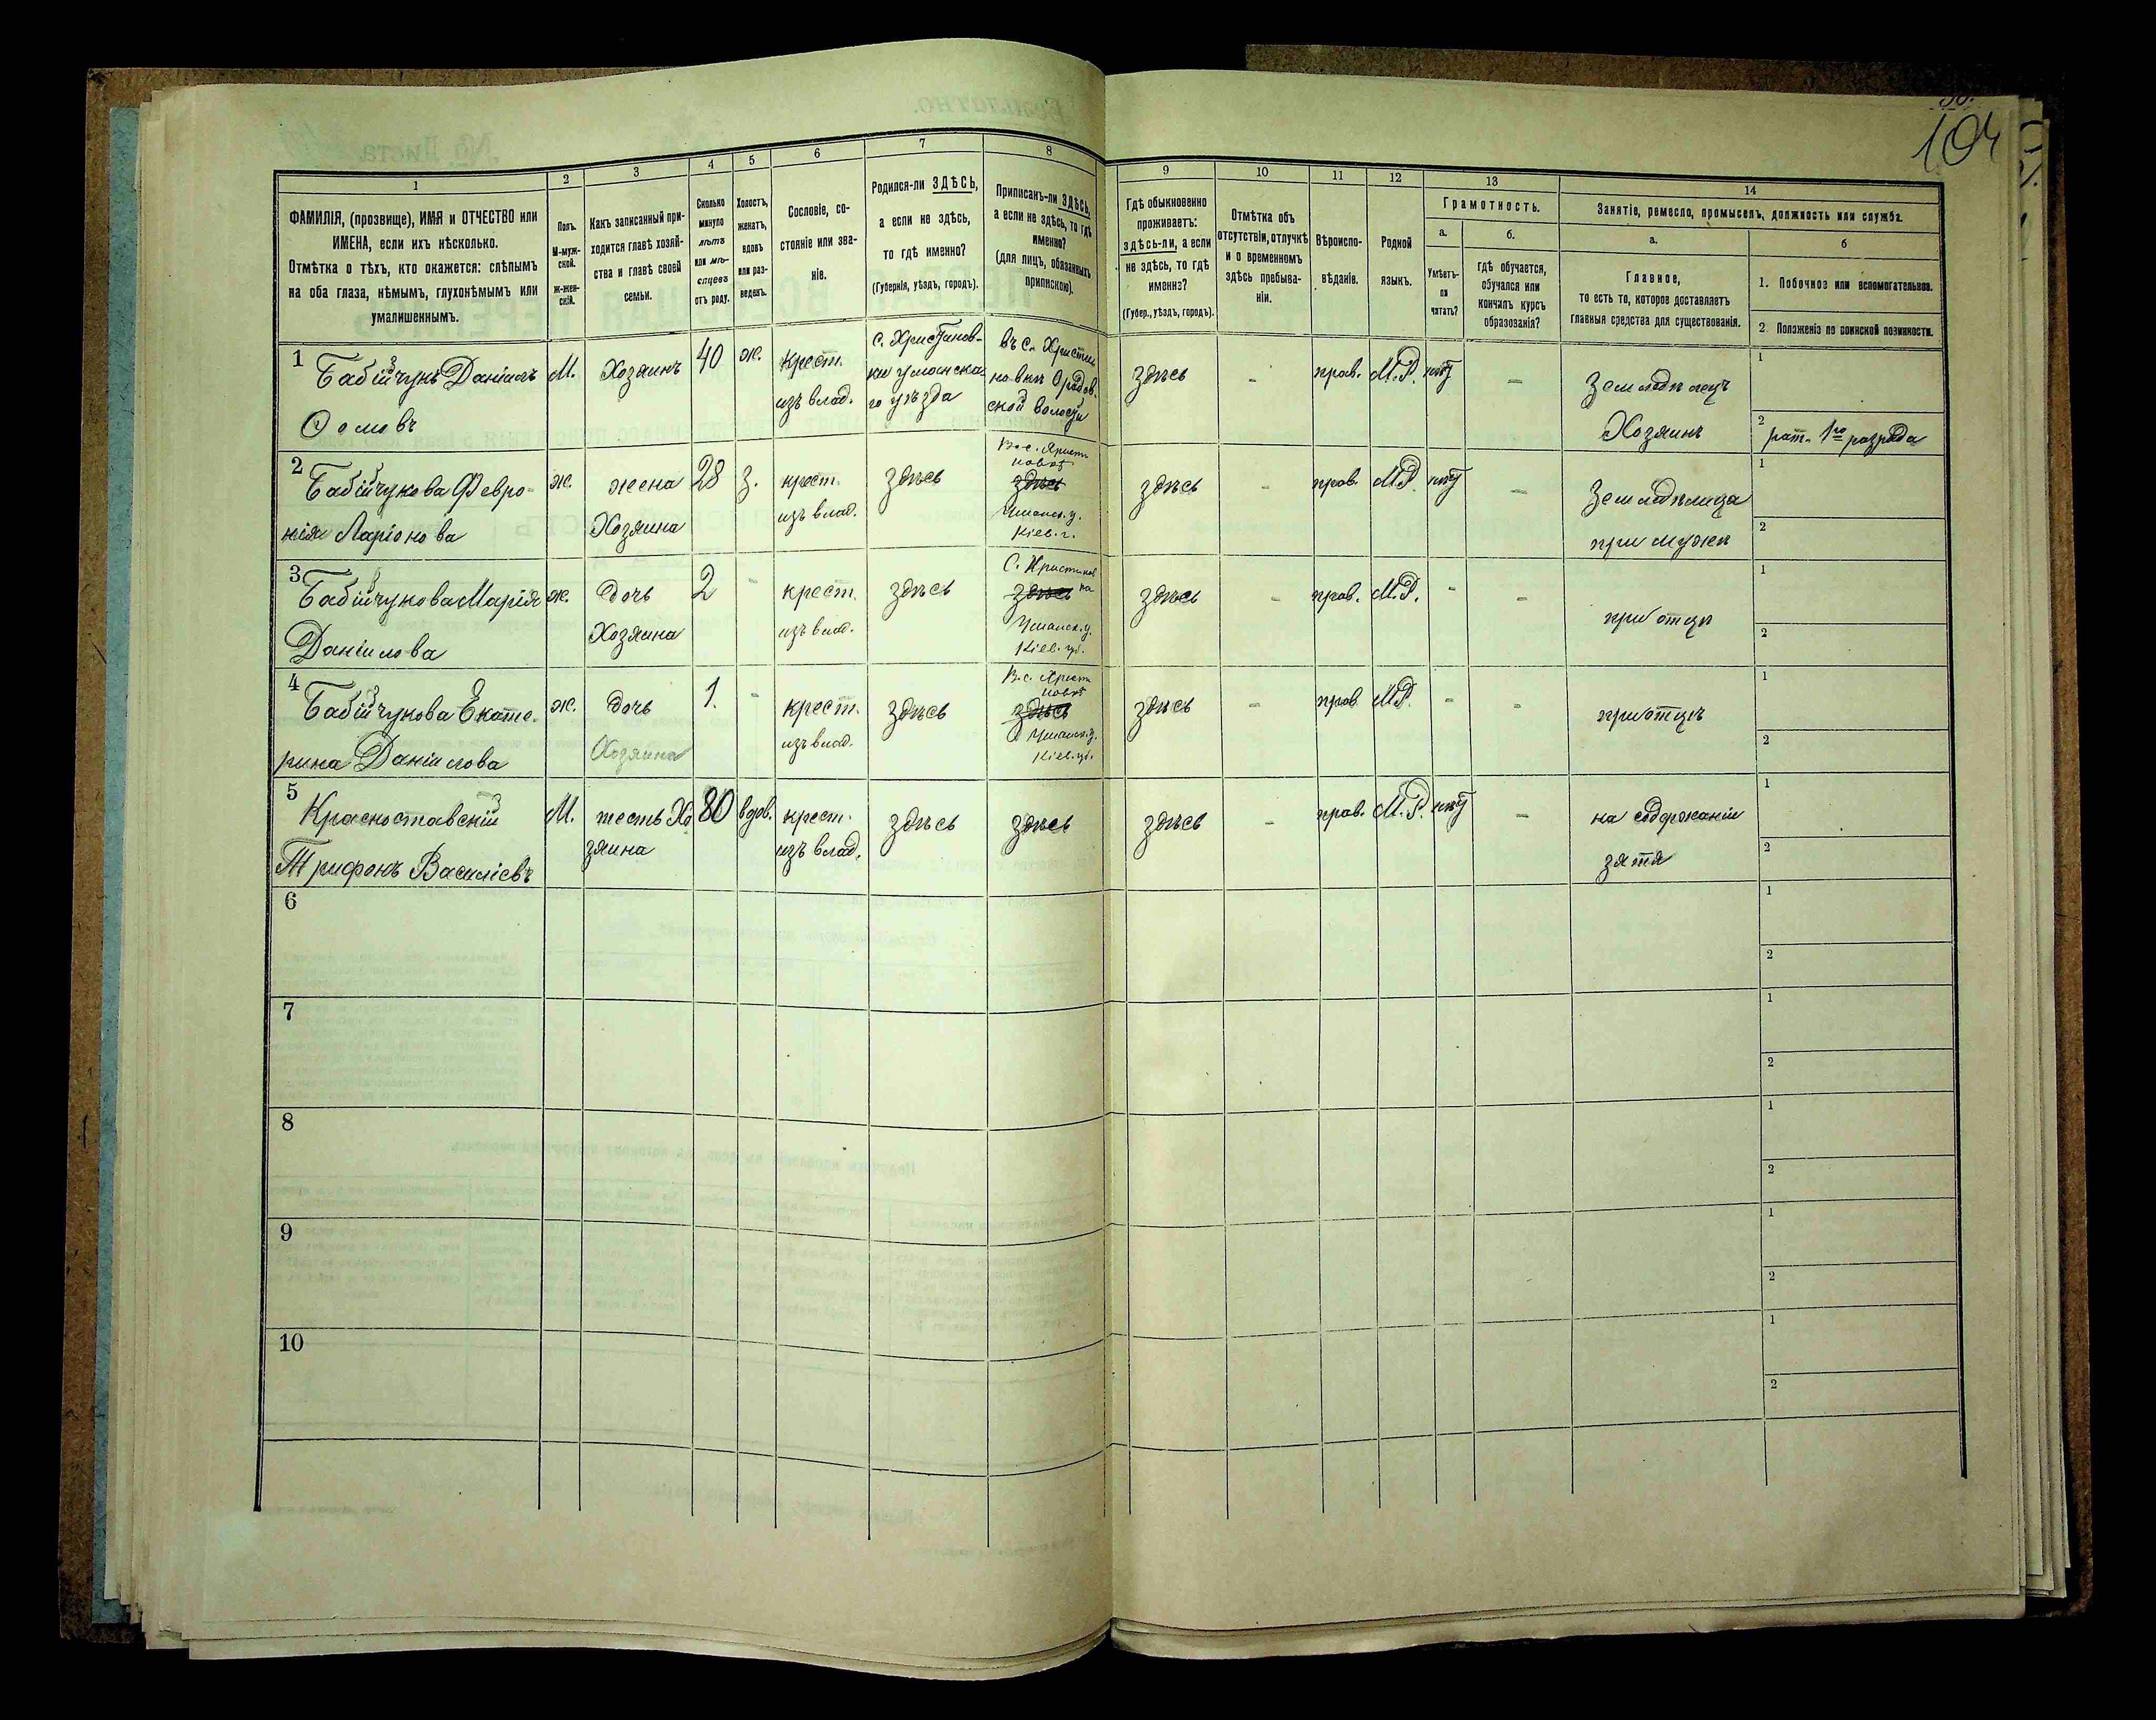 104
1
2
3
4
5
6
7
8
9
10
11
12
13
14
ФАМИЛІЯ, (прозвище), ИМЯ и ОТЧЕСТВО или
ИМЕНА, если ихъ нѣсколько.
Отмѣтка о тѣхъ, кто окажется: слѣпымъ
на оба глаза, нѣмымъ, глухонѣмымъ или
умалишеннымъ.
Полъ.
М-муж-
ской.
ж-жен-
скій.
Какъ записанный при-
ходится главѣ хозяй-
ства и главѣ своей
семьи.
Сколько
минуло
лѣтъ
или мѣ-
сяцевъ
отъ роду.
Холостъ,
женатъ,
вдовъ
или раз-
веденъ.
Сословіе, со-
стояніе или зва-
ніе.
Родился-ли ЗДѢСЬ,
а если не здѣсь,
то гдѣ именно?
(Губернія, уѣздъ, городъ).
Приписанъ-ли ЗДѢСЬ,
а если не здѣсь, то гдѣ
именно?
(для лицъ, обязанныхъ
припискою).
Гдѣ обыкновенно
проживаетъ:
здѣсь-ли, а если
не здѣсь, то гдѣ
именно?
(Губер., уѣздъ, городъ).
Отмѣтка объ
отсутствіи, отлучкѣ
и о временномъ
здѣсь пребыва-
ніи.
Вѣроиспо-
вѣданіе.
Родной
языкъ.
Грамотность.
а.
б.
Умѣетъ-
ли
читать?
гдѣ обучается,
обучался или
кончилъ курсъ
образованія?
Занятіе, ремесло, промыселъ, должность или служба.
а.
б
Главное,
то есть то, которое доставляетъ
главныя средства для существованія.
1. Побочное или вспомогательное.
2. Положеніе по воинской повинности.
1 Бабійчукъ Даніилъ М. Хозяинъ 40 ж. крест. с. Христинов- въ с. Христи здѣсь - прав. М.Р. нѣт - Земледѣлецъ 1
изъ влад. ки уманска- новки Орадов.
го уѣзда ской волости
Хозяинъ 2 рат. 1го разряда
2 Бабійчукова Февро- ж. жена 28 з. крест. здѣсь В с. Христи новкѣ здѣсь здѣсь - прав. М.Р. нѣт - Земледѣлица 1
нія Ларіонова Хозяина изъ влад. Уманск. у. при мужѣ 2
Кіев. г.
3 Бабійчукова Марія ж. дочь 2 - крест. здѣсь С. Христинов ка здѣсь здѣсь - прав. М.Р. - - при отцѣ 1
Даніилова Хозяина изъ влад. Уманск. у. 2
Кіев. губ.
4 Бабійчукова Екате- ж. дочь 1. - крест. здѣсь В. с. Христи новкѣ здѣсь здѣсь - прав. М.Р. - - при отцѣ 1
рина Даніилова Хозяина изъ влад. Уманск. у. 2
Кіев. губ.
5 Красноставскій М. тесть Хо 80 вдов. крест. здѣсь здѣсь здѣсь - прав. М.Р. нѣт - на содержаніи 1
Трифонъ Василіевъ зяина изъ влад. зятя 2
6 1
2
7 1
2
8 1
2
9 1
2
10 1
2